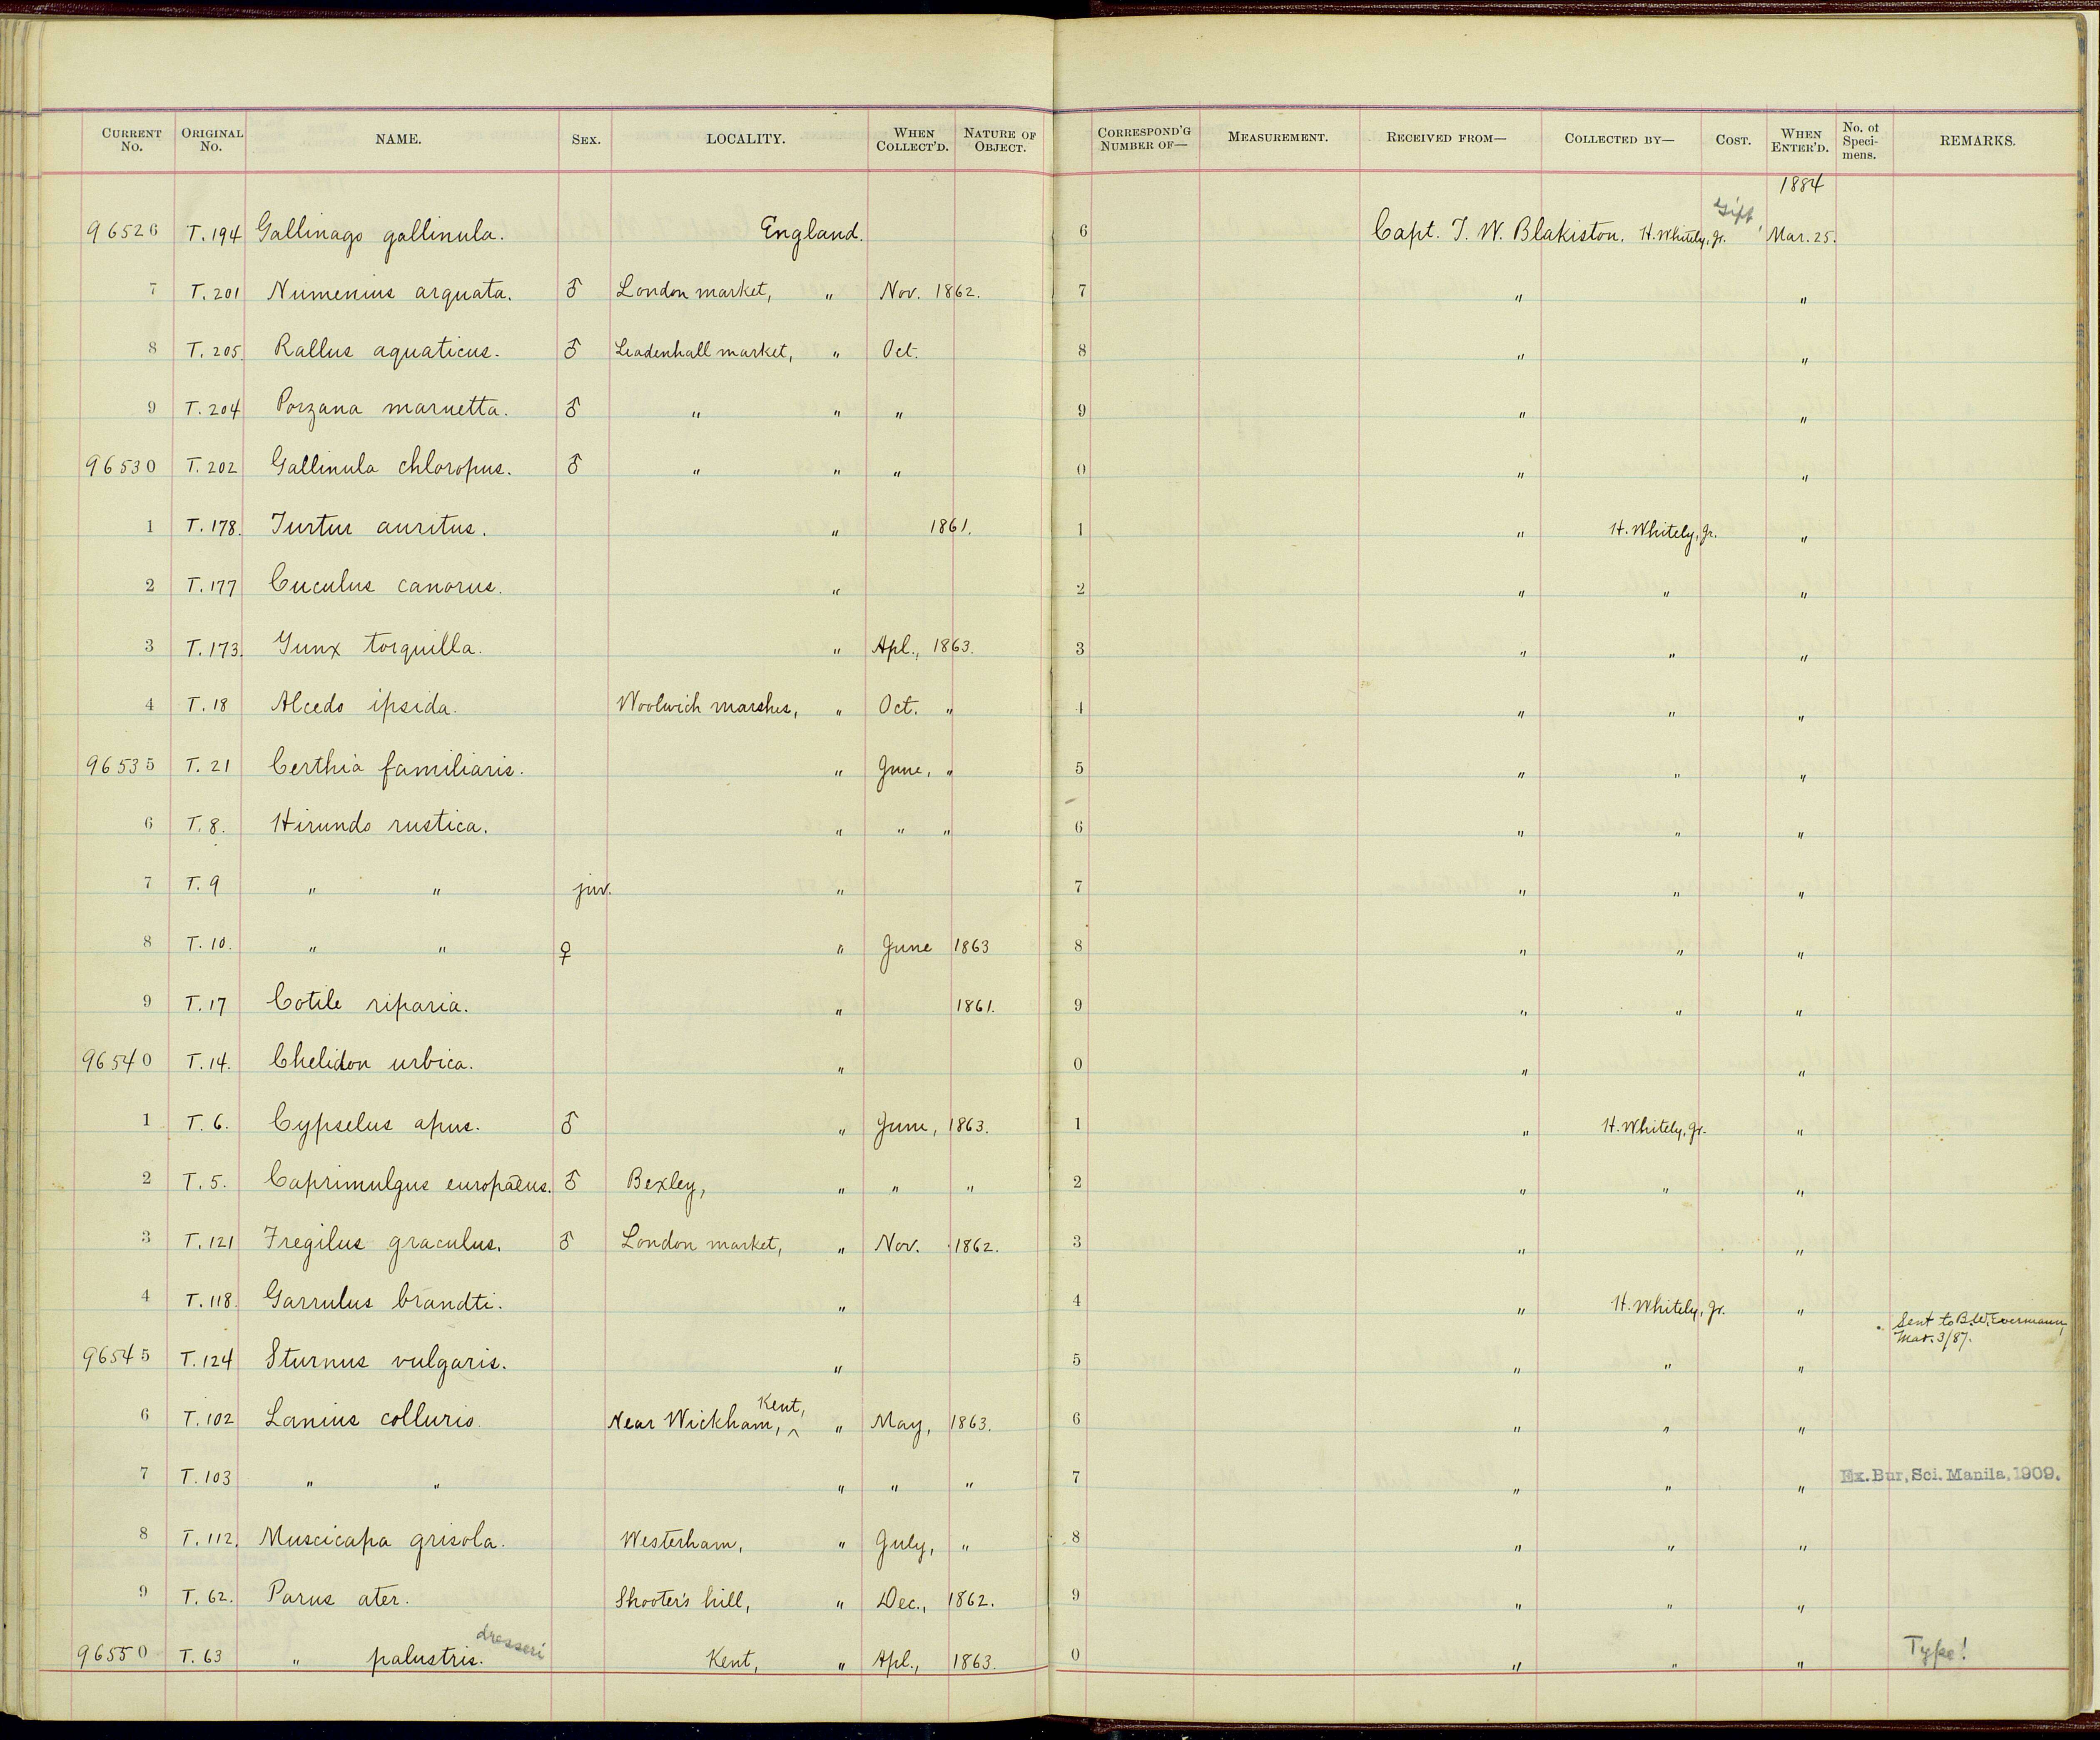 CURRENT No. ORIGINAL No. NAME. SEX. LOCALITY. WHEN COLLECT'D. NATURE OF OBJECT. CORRESPOND'G NUMBER OF— MEASUREMENT. RECEIVED FROM— COLLECTED BY— COST. WHEN ENTER'D. No. of Specimens. REMARKS.
1884
96526 T. 194 Gallinago gallinula. England. 6 Capt. T. W. Blakiston. H. Whitely, Jr. Gift, Mar. 25.
7 T. 201 Numenius arquata. ♂ London market, " Nov. 1862. 7 " "
8 T. 205. Rallus aquaticus. ♂ Leadenhall market, " Oct. 8 " "
9 T. 204 Porzana maruetta. ♂ " " " 9 " "
96530 T. 202 Gallinula chloropus. ♂ " " " 0 " "
1 T. 178. Turtur auritus. " 1861. 1 " H. Whitely, Jr. "
2 T. 177 Cuculus canorus. " 2 " " "
3 T. 173. Yunx torquilla. " Apl., 1863. 3 " " "
4 T. 18 Alcedo ipsida. Woolwich marshes, " Oct. " 4 " " "
96535 T. 21 Certhia familiaris. " June, " 5 " " "
6 T. 8. Hirundo rustica. " " " 6 " " "
7 T. 9 " " juv. " 7 " " "
8 T. 10. " " ♀ " June 1863 8 " " "
9 T. 17 Cotile riparia. " 1861. 9 " " "
96540 T. 14. Chelidon urbica. " 0 " "
1 T. 6. Cypselus apus. ♂ " June, 1863. 1 " H. Whitely, Jr. "
2 T. 5. Caprimulgus europaeus. ♂ Bexley, " " " 2 " " "
3 T. 121 Fregilus graculus. ♂ London market, " Nov. 1862. 3 " "
4 T. 118. Garrulus brandti. " 4 " H. Whitely, Jr. "
Sent to B. W. Evermann,
Mar. 3/87.
96545 T. 124 Sturnus vulgaris. " 5 " " "
6 T. 102 Lanius collurio. Near Wickham, ^ Kent, " May, 1863. 6 " " "
7 T. 103 " " " " " 7 " " " Ex. Bur, Sci. Manila, 1909.
8 T. 112. Muscicapa grisola. Westerham, " July, " 8 " " "
9 T. 62. Parus ater. Shooter's hill, " Dec., 1862. 9 " " "
96550 T. 63 " palustris. dresseri Kent, " Apl., 1863. 0 " " " Type!